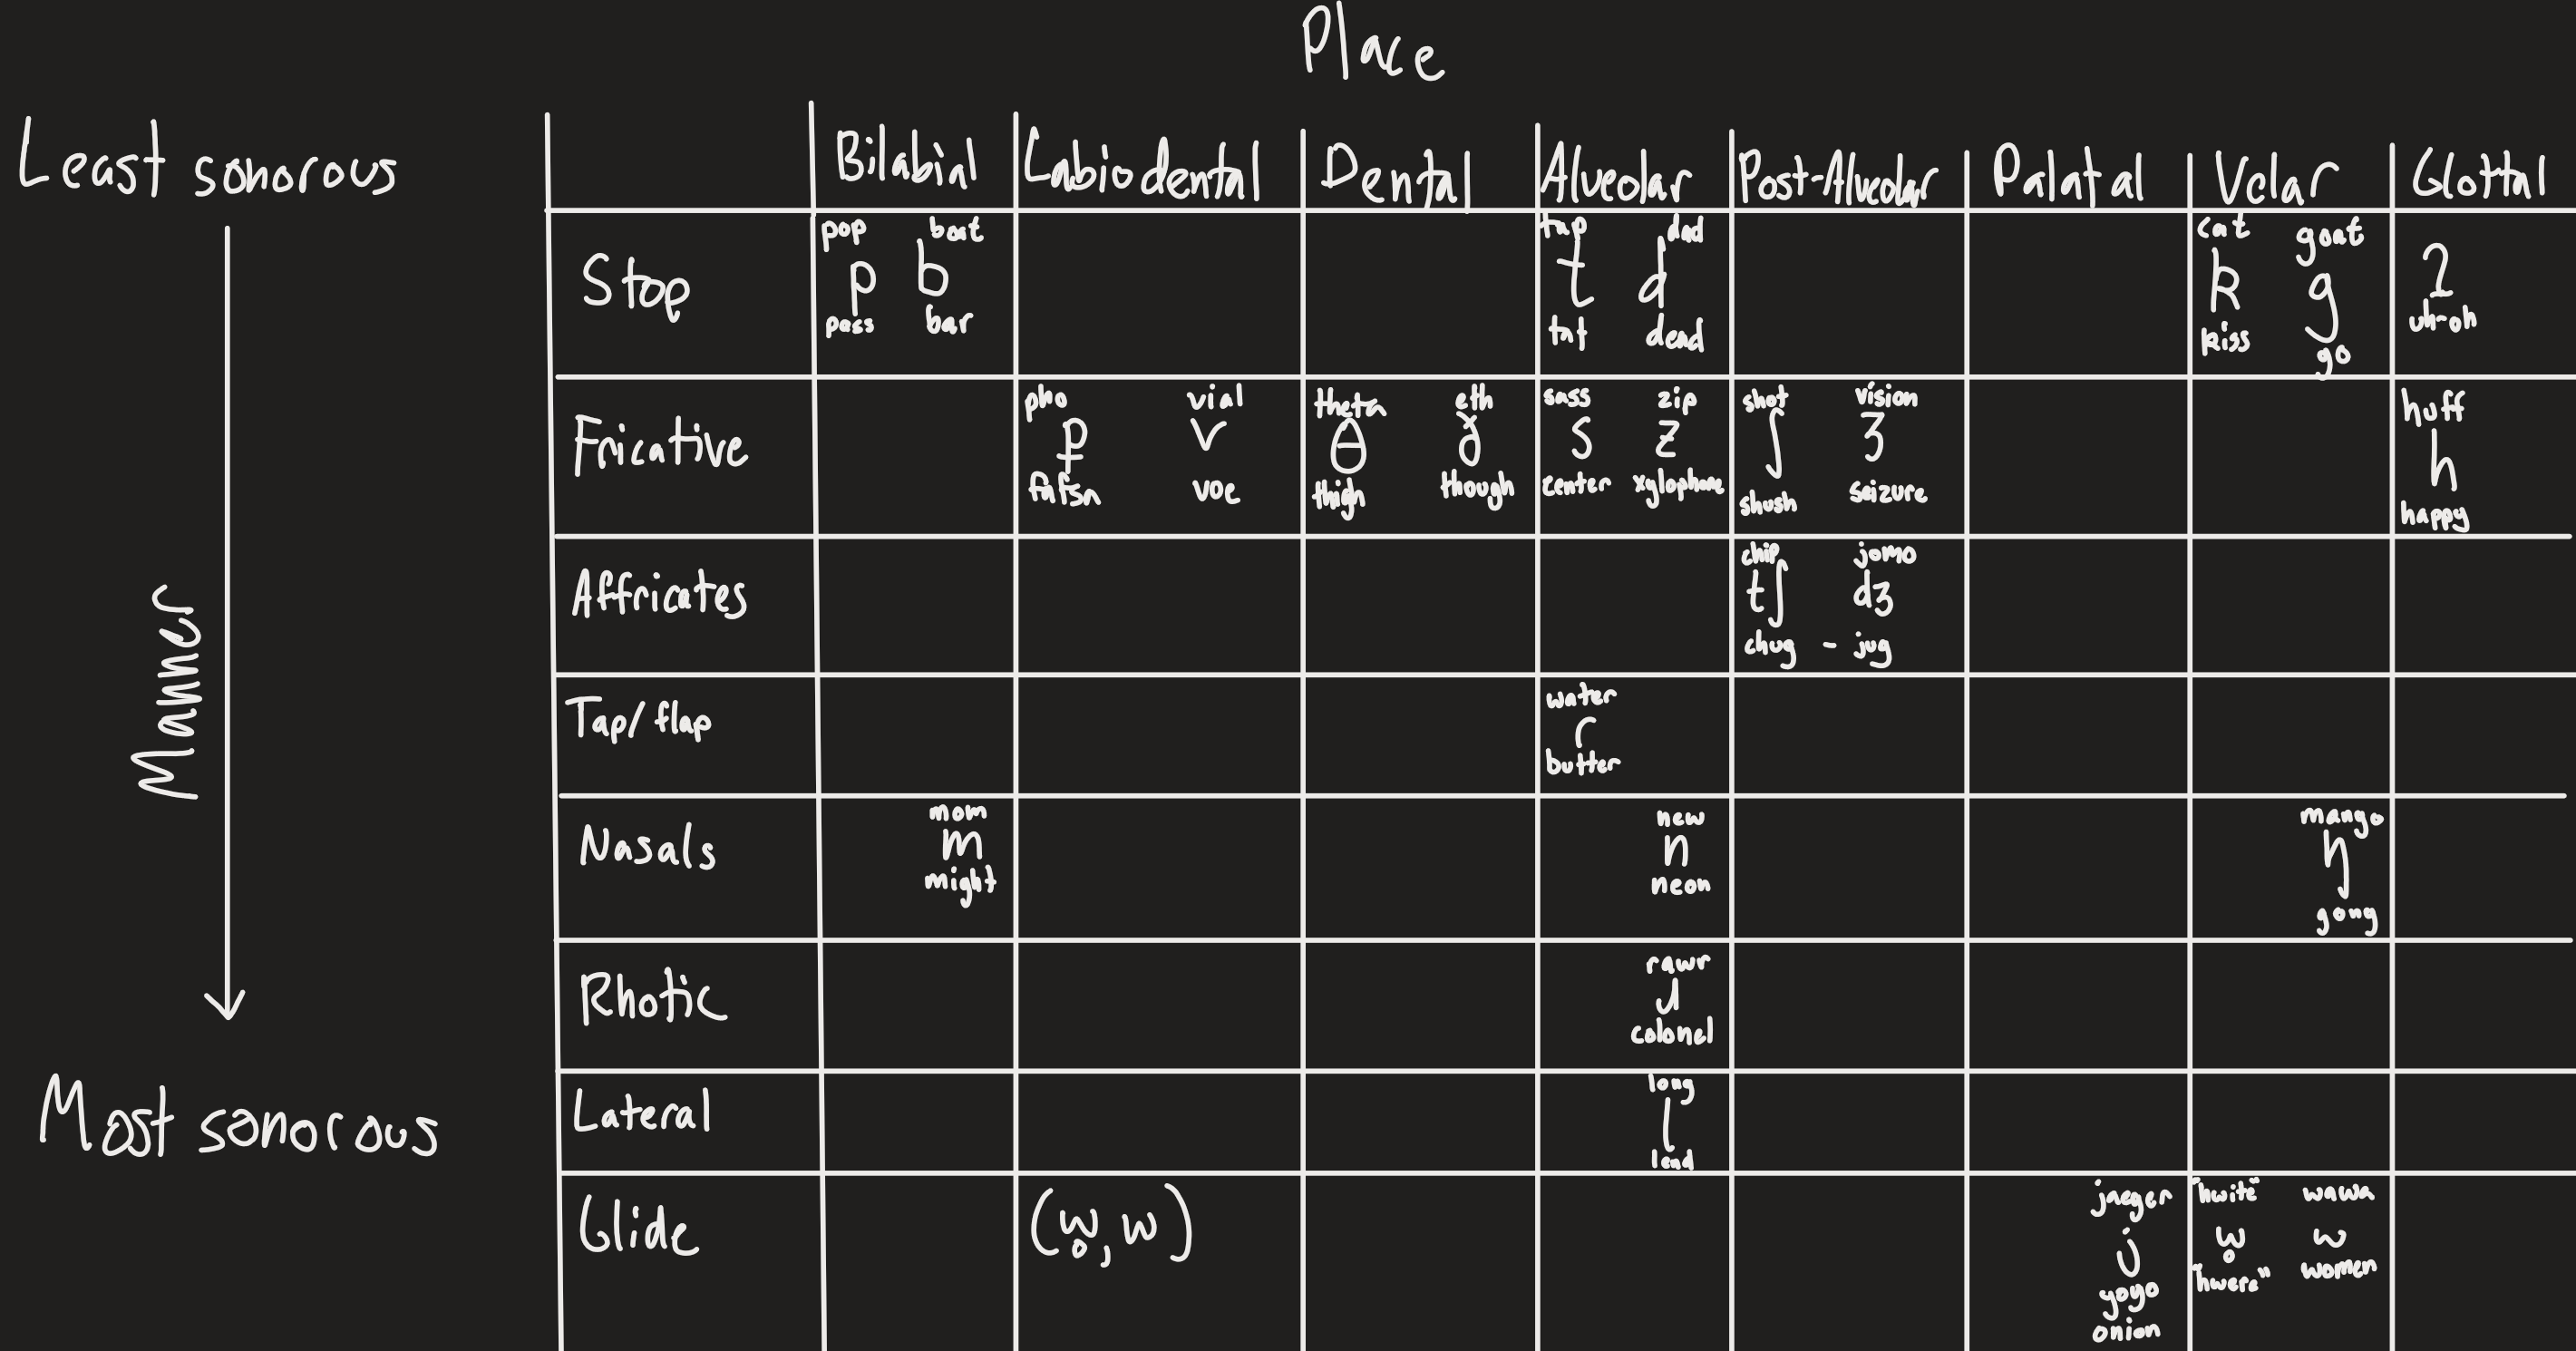 Place
Least sonorous
Manner
Most sonorous
Bilabial Labiodental Dental Alveolar Post-Alveolar Palatal Velar Glottal
Stop
pop boat
p b
pass bar
tap dad
t d
tnt dead
cat goat
k g
kiss go
ʔ
uh-oh
Fricative
pho vial
v
fafsa voe
theta eth
θ ð
thigh though
sass zip
s z
center xylophone
shot vision
ʃ ʒ
shush seizure
huff
h
happy
Affricates
chip jomo
tʃ dʒ
chug - jug
Tap/flap
water
ɾ
butter
Nasals
mom
m
might
new
n
neon
mango
ŋ
gong
Rhotic
rawr
ɹ
colonel
Lateral
long
l
Glide
(w̥, w)
jaeger
j
yoyo
onion
"hwite" wawa
w̥ w
"hwere" women